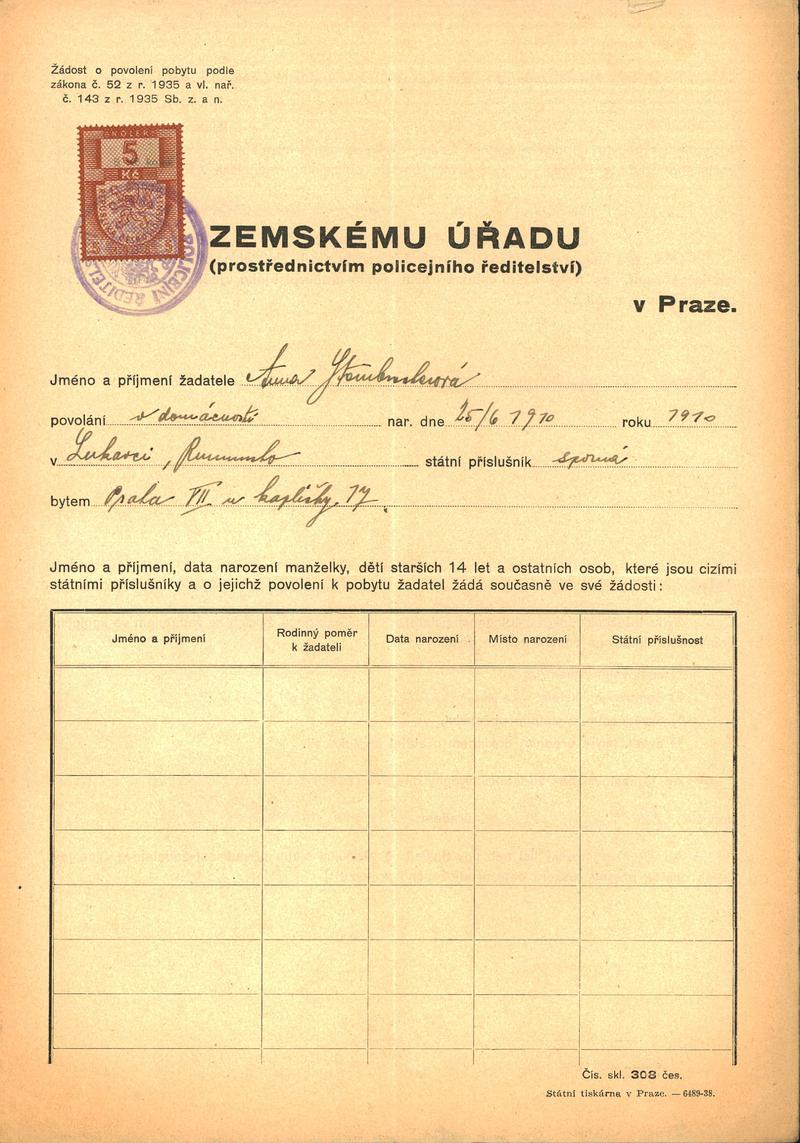 Žádost o povolení pobytu podle
zákona č. 52 z r. 1935 a vl. nař.
č. 143 z r. 1935 Sb. z. a n.
5
Kč
POLICEJNÍ ŘEDITEL
ZEMSKÉMU ÚŘADU
(prostřednictvím policejního ředitelství)
v Praze.
Jméno a příjmení žadatele Anna
povolání v domácnosti nar. dne 25/6 1910 roku 1910
v státní příslušník sporná
bytem Praha VII u kapličky 17
Jméno a příjmení, data narození manželky, dětí starších 14 let a ostatních osob, které jsou cizími
státními příslušníky a o jejichž povolení k pobytu žadatel žádá současně ve své žádosti:
Jméno a příjmení
Rodinný poměr
k žadateli
Data narození
Místo narození
Státní příslušnost
Čís. skl. 308 čes.
Státní tiskárna v Praze. — 6489-38.